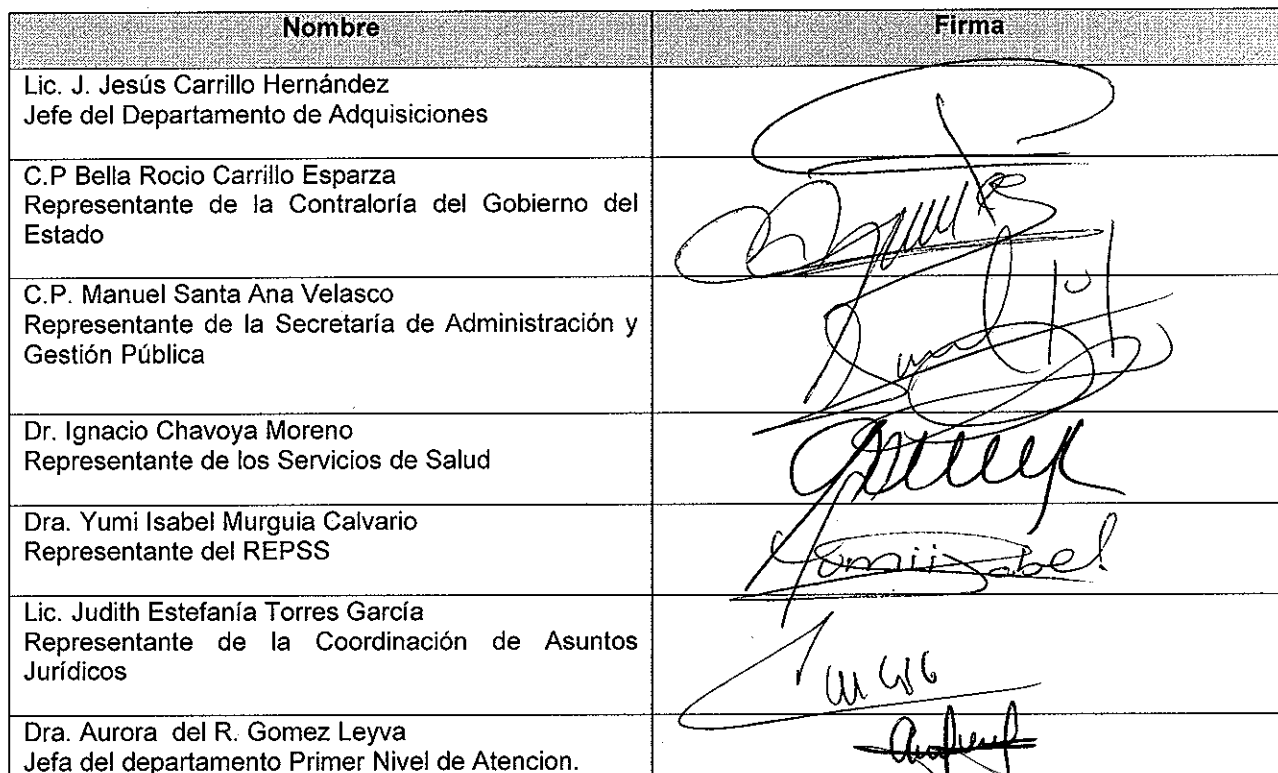 Nombre
Firma
Lic. J. Jesús Carrillo Hernández
Jefe del Departamento de Adquisiciones
C.P Bella Rocio Carrillo Esparza
Representante de la Contraloría del Gobierno del
Estado
C.P. Manuel Santa Ana Velasco
Representante de la Secretaría de Administración y
Gestión Pública
Dr. Ignacio Chavoya Moreno
Representante de los Servicios de Salud
Dra. Yumi Isabel Murguia Calvario
Representante del REPSS
Lic. Judith Estefanía Torres García
Representante de la Coordinación de Asuntos
Jurídicos
Dra. Aurora del R. Gomez Leyva
Jefa del departamento Primer Nivel de Atencion.